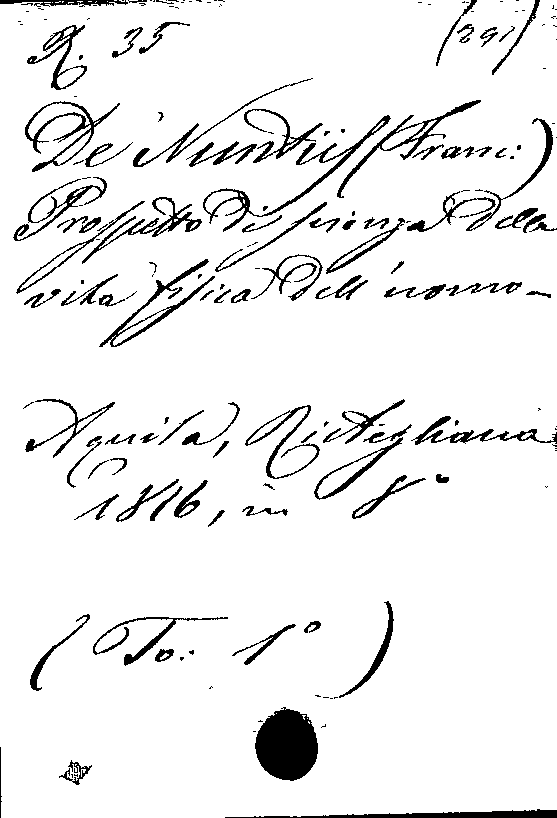 R. 35 (291)
De Nuntiis (Franc:)
Prospetto di scienza della
vita fisica dell'uomo-
Aquila, Rietegliana
1816, in 8°
(To: 1°)